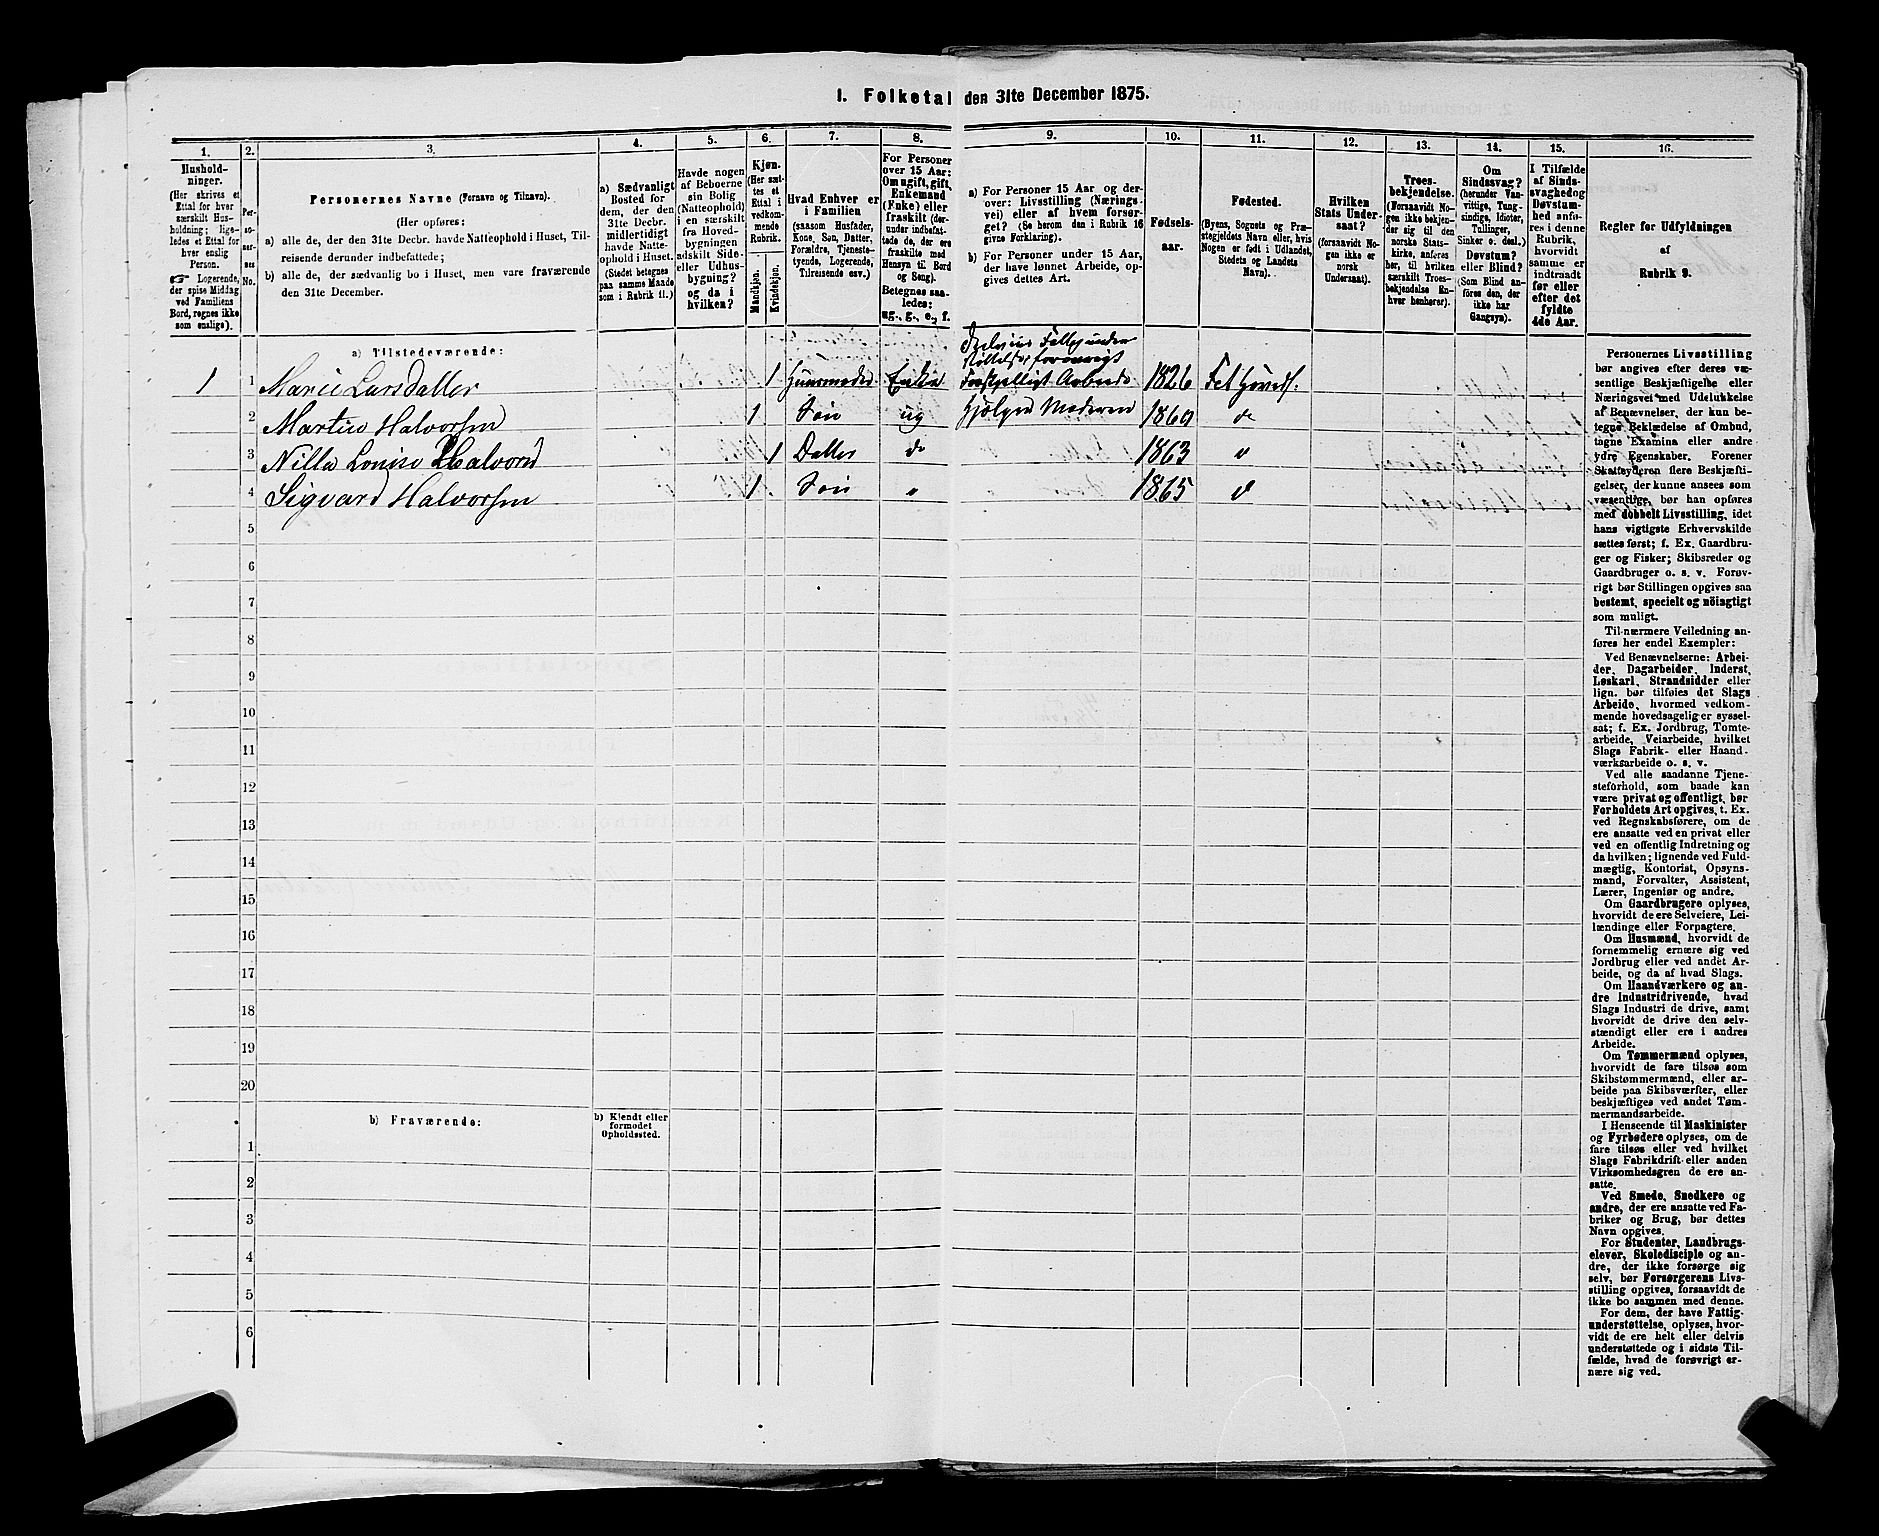 1. Folketal den 31te December 1875.
1.
Hushold-
ninger.
(Her skrives et
Ettal for hver
særskilt Hus-
holdning; lige-
ledes et Ettal for
hver enslig
Person.
Logerende,
der spise Middag
ved Familiens
Bord, regnes ikke
som enslige).
2.
Per-
so-
ner-
nes
No.
3.
Personernes Navne (Fornavn og Tilnavn).
(Her opføres:
a) alle de, der den 31te Decbr. havde Natteophold i Huset, Til-
reisende derunder indbefattede;
b) alle de, der sædvanlig bo i Huset, men vare fraværende
den 31te December.
4.
a) Sædvanligt
Bosted for
dem, der den
31te Decbr.
midlertidigt
havde Natte-
ophold i Huset.
(Stedet betegnes
paa samme Maade
som i Rubrik 11.)
5.
Havde nogen
af Beboerne
sin Bolig
(Natteophold)
i en særskilt
fra Hoved-
bygningen
adskilt Side-
eller Udhus-
bygning?
og da i
hvilken?
6.
Kjøn.
(Her sæt-
tes et
Ettal i
vedkom-
mende
Rubrik.
Mandkjøn.
Kvindekjøn.
7.
Hvad Enhver er
i Familien
(saasom Husfader,
Kone, Søn, Datter,
Forældre, Tjeneste-
tyende, Logerende,
Tilreisende osv.)
8.
For Personer
over 15 Aar:
Om ugift, gift,
Enkemand
(Enke) eller
fraskilt (der-
under indbefat-
tede de, der ere
fraskilte med
Hensyn til Bord
og Seng).
Betegnes saa-
ledes:
ug., g., e., f.
9.
a) For Personer 15 Aar og der-
over: Livsstilling (Nærings-
vei) eller af hvem forsør-
get? (Se herom den i Rubrik 16
givne Forklaring).
b) For Personer under 15 Aar,
der have lønnet Arbeide, op-
gives dettes Art.
10.
Fødsels-
aar.
11.
Fødested.
(Byens, Sognets og Præ-
stegjeldets Navn eller, hvis
Nogen er født i Udlandet,
Stedets og Landets
Navn).
12.
Hvilken
Stats Under-
saat?
(forsaavidt No-
gen ikke er
norsk
Undersaat).
13.
Troes-
bekjendelse.
(Forsaavidt No-
gen ikke bekjen-
der sig til den
norske Stats-
kirke, anføres
her, til hvilken
særskilt Troes-
bekjendelse En-
hver henhører).
14.
Om
Sindssvag?
(herunder Van-
vittige, Tung-
sindige, Idioter,
Tullinger,
Sinker o. desl.)
Døvstum?
eller Blind?
(Som Blind an-
føres den, der
ikke har
Gangsyn).
15.
I Tilfælde
af Sinds-
svaghed og
Døvstum-
hed anfø-
res i denne
Rubrik,
hvorvidt
samme er
indtraadt
før eller
efter det
fyldte
4de Aar.
16.
Regler for Udfyldningen
af
Rubrik 9.
a) Tilstedeværende:
1 1 Marie Larsdatter 1 Huusmoder Enke Forskjelligt Arbeide 1826 Fet
2 Martin Halvorsen 1 Søn ug Hjelper Moderen 1860 do
3 Nilla Lovise Halvorsd 1 Datter do 1863 "
4 Sigvard Halvorsen 1 Søn " 1865 "
5
6
7
8
9
10
11
12
13
14
15
16
17
18
19
20
b) Fraværende:
b) Kjendt eller
formodet
Opholdssted.
1
2
3
4
5
6
Personernes Livsstilling
bør angives efter deres væ-
sentlige Beskjæftigelse eller
Næringsvei med Udelukkelse
af Benævnelser, der kun be-
tegne Beklædelse af Ombud,
tagne Examina eller andre
ydre Egenskaber. Forener
Skatteyderen flere Beskjæfti-
gelser, der kunne ansees som
væsentlige, bør han opføres
med dobbelt Livsstilling, idet
hans vigtigste Erhvervskilde
sættes først; f. Ex. Gaardbru-
ger og Fisker; Skibsreder og
Gaardbruger o. s. v. Forøv-
rigt bør Stillingen opgives saa
bestemt, specielt og nöiagtigt
som muligt.
Til nærmere Veiledning an-
føres her endel Exempler:
Ved Benævnelserne: Arbei-
der, Dagarbeider, Inderst,
Løskarl, Strandsidder eller
lign. bør tilføies det Slags
Arbeide, hvormed vedkom-
mende hovedsagelig er syssel-
sat; f. Ex. Jordbrug, Tomte-
arbeide, Veiarbeide, hvilket
Slags Fabrik- eller Haand-
værksarbeide o. s. v.
Ved alle saadanne Tjene-
steforhold, som baade kan
være privat og offentligt, bør
Forholdets Art opgives, t. Ex.
ved Regnskabsførere, om de
ere ansatte ved en privat eller
ved en offentlig Indretning og
da hvilken; lignende ved Fuld-
mægtig, Kontorist, Opsyns-
mand, Forvalter, Assistent,
Lærer, Ingeniør og andre.
Om Gaardbrugere oplyses,
hvorvidt de ere Selveiere, Lei-
lændinge eller Forpagtere.
Om Husmænd, hvorvidt de
fornemmelig ernære sig ved
Jordbrug eller ved andet Ar-
beide, og da af hvad Slags.
Om Haandværkere og an-
dre Industridrivende, hvad
Slags Industri de drive, samt
hvorvidt de drive den selv-
stændigt eller ere i andres
Arbeide.
Om Tømmermænd oplyses,
hvorvidt de fare tilsøs som
Skibstømmermænd, eller ar-
beide paa Skibsværfter, eller
beskjæftiges ved andet Tøm-
mermandsarbeide.
I Henseende til Maskinister
og Fyrbødere oplyses, om de
fare tilsøs eller ved hvilket
Slags Fabrikdrift eller anden
Virksomhedsgren de ere an-
satte.
Ved Smede, Snedkere og
andre, der ere ansatte ved Fa-
briker og Brug, bør dettes
Navn opgives.
For Studenter, Landbrugs-
elever, Skoledisciple og an-
dre, der ikke forsørge sig
selv, bør Forsørgerens Livs-
stilling opgives, forsaavidt de
ikke bo sammen med denne.
For dem, der have Fattig-
understøttelse, oplyses, hvor-
vidt de ere helt eller delvis
understøttede og i sidste Til-
fælde, hvad de forøvrigt er-
nære sig ved.